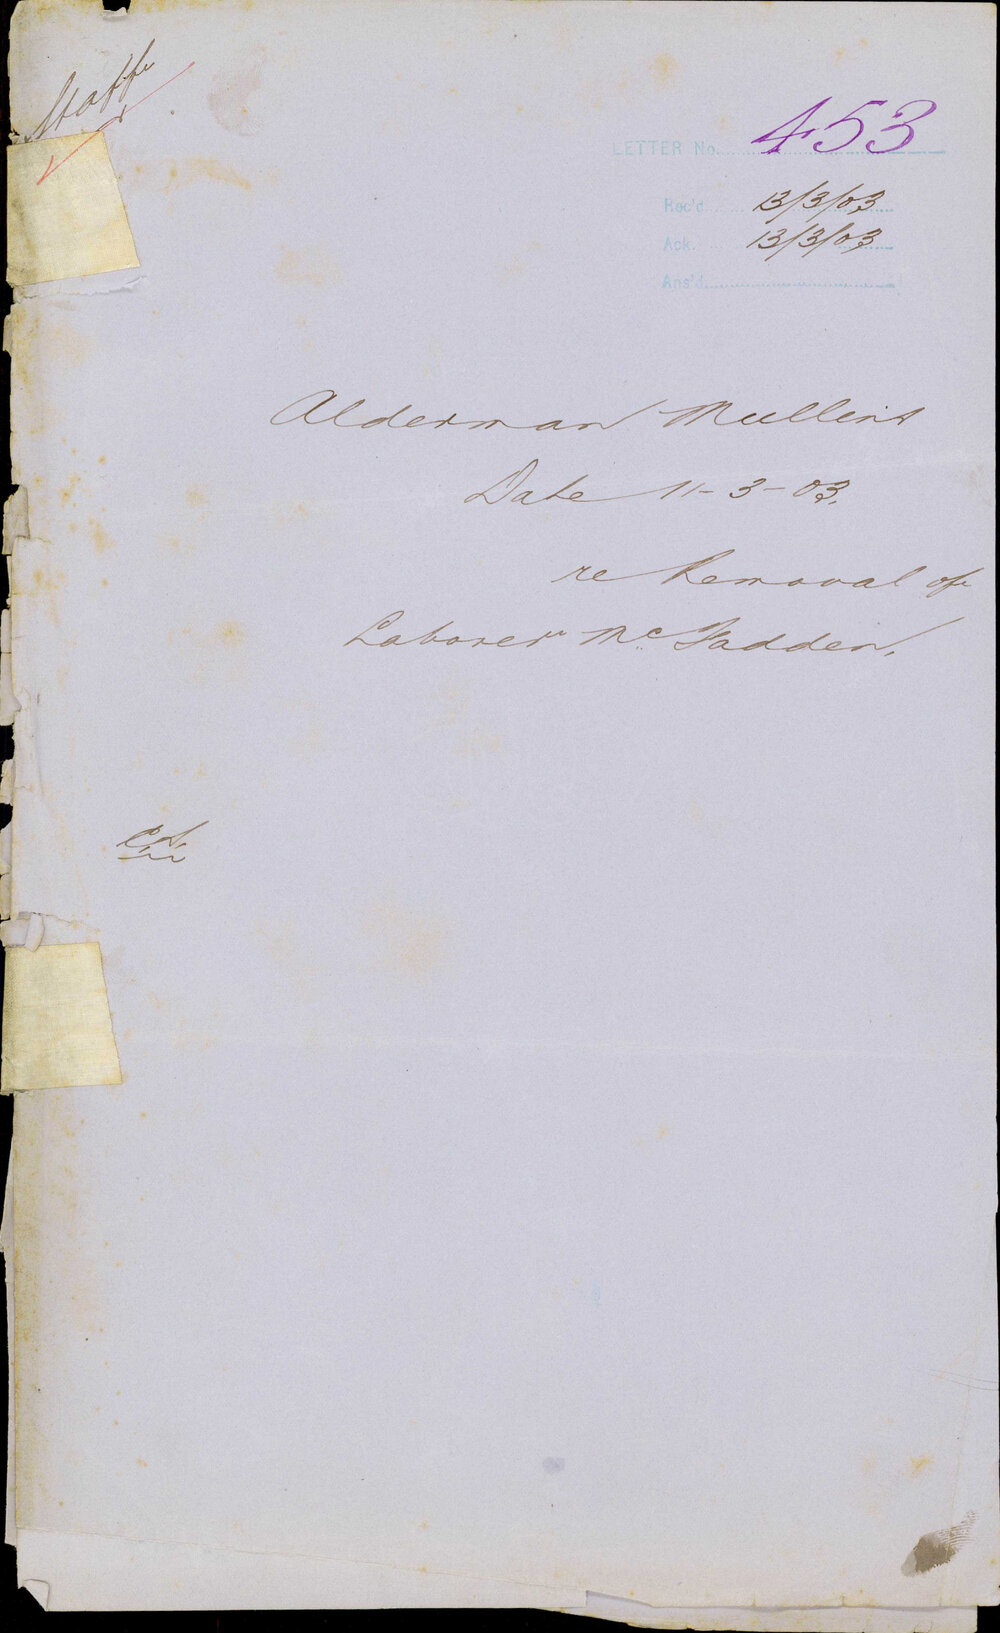 Staff
LETTER No. 453
Rec'd 13/3/03
Ack. 13/3/03
Ans'd
Alderman Mullins
Date 11-3-03.
re Removal of
Laborer McFadden.